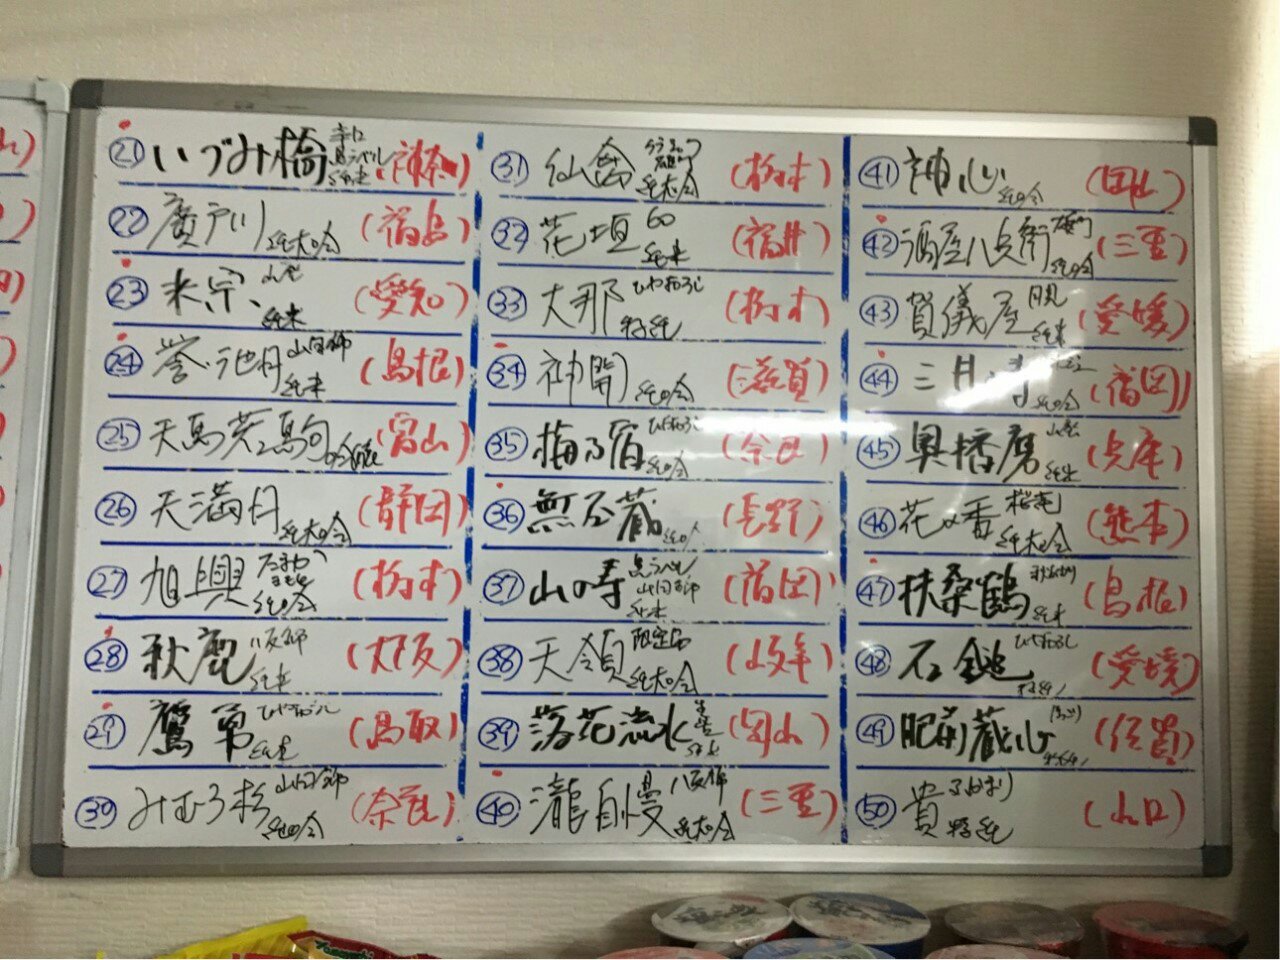 ㉑ いづみ橋 辛口 純米 (神奈川)
㉒ 廣戸川 純大吟 (福島)
㉓ 米宗 山廃 純米 (愛知)
㉔ 誉池月 山田錦 純米 (島根)
㉕ 天馬 (富山)
㉖ 天満月 純大吟 (静岡)
㉗ 旭興 純吟 (栃木)
㉘ 秋鹿 八反錦 純米 (大阪)
㉙ 鷹勇 ひやおろし 純米 (鳥取)
㉚ みむろ杉 山田錦 純吟 (奈良)
㉛ 仙禽 純大吟 (栃木)
㉜ 花垣 60 純米 (福井)
㉝ 大那 ひやおろし 特純 (栃木)
㉞ 神開 純吟 (滋賀)
㉟ 梅乃宿 ひやおろし 純吟 (奈良)
㊱ 無石蔵 純吟 (長野)
㊲ 山の寿 山田錦 純米 (福岡)
㊳ 天領 限定品 純大吟 (岐阜)
㊴ 落花流水 (岡山)
㊵ 瀧自慢 八反錦 純大吟 (三重)
㊶ 神心 純吟 (岡山)
㊷ 酒屋八兵衛 純吟 (三重)
㊸ 賀儀屋 純米 (愛媛)
㊹ 三井の寿 純吟 (福岡)
㊺ 奥播磨 山廃 純米 (兵庫)
㊻ 花の香 桜花 純大吟 (熊本)
㊼ 扶桑鶴 純米 (島根)
㊽ 石鎚 ひやおろし (愛媛)
㊾ 肥前蔵心 (佐賀)
㊿ 貴 特純 (山口)